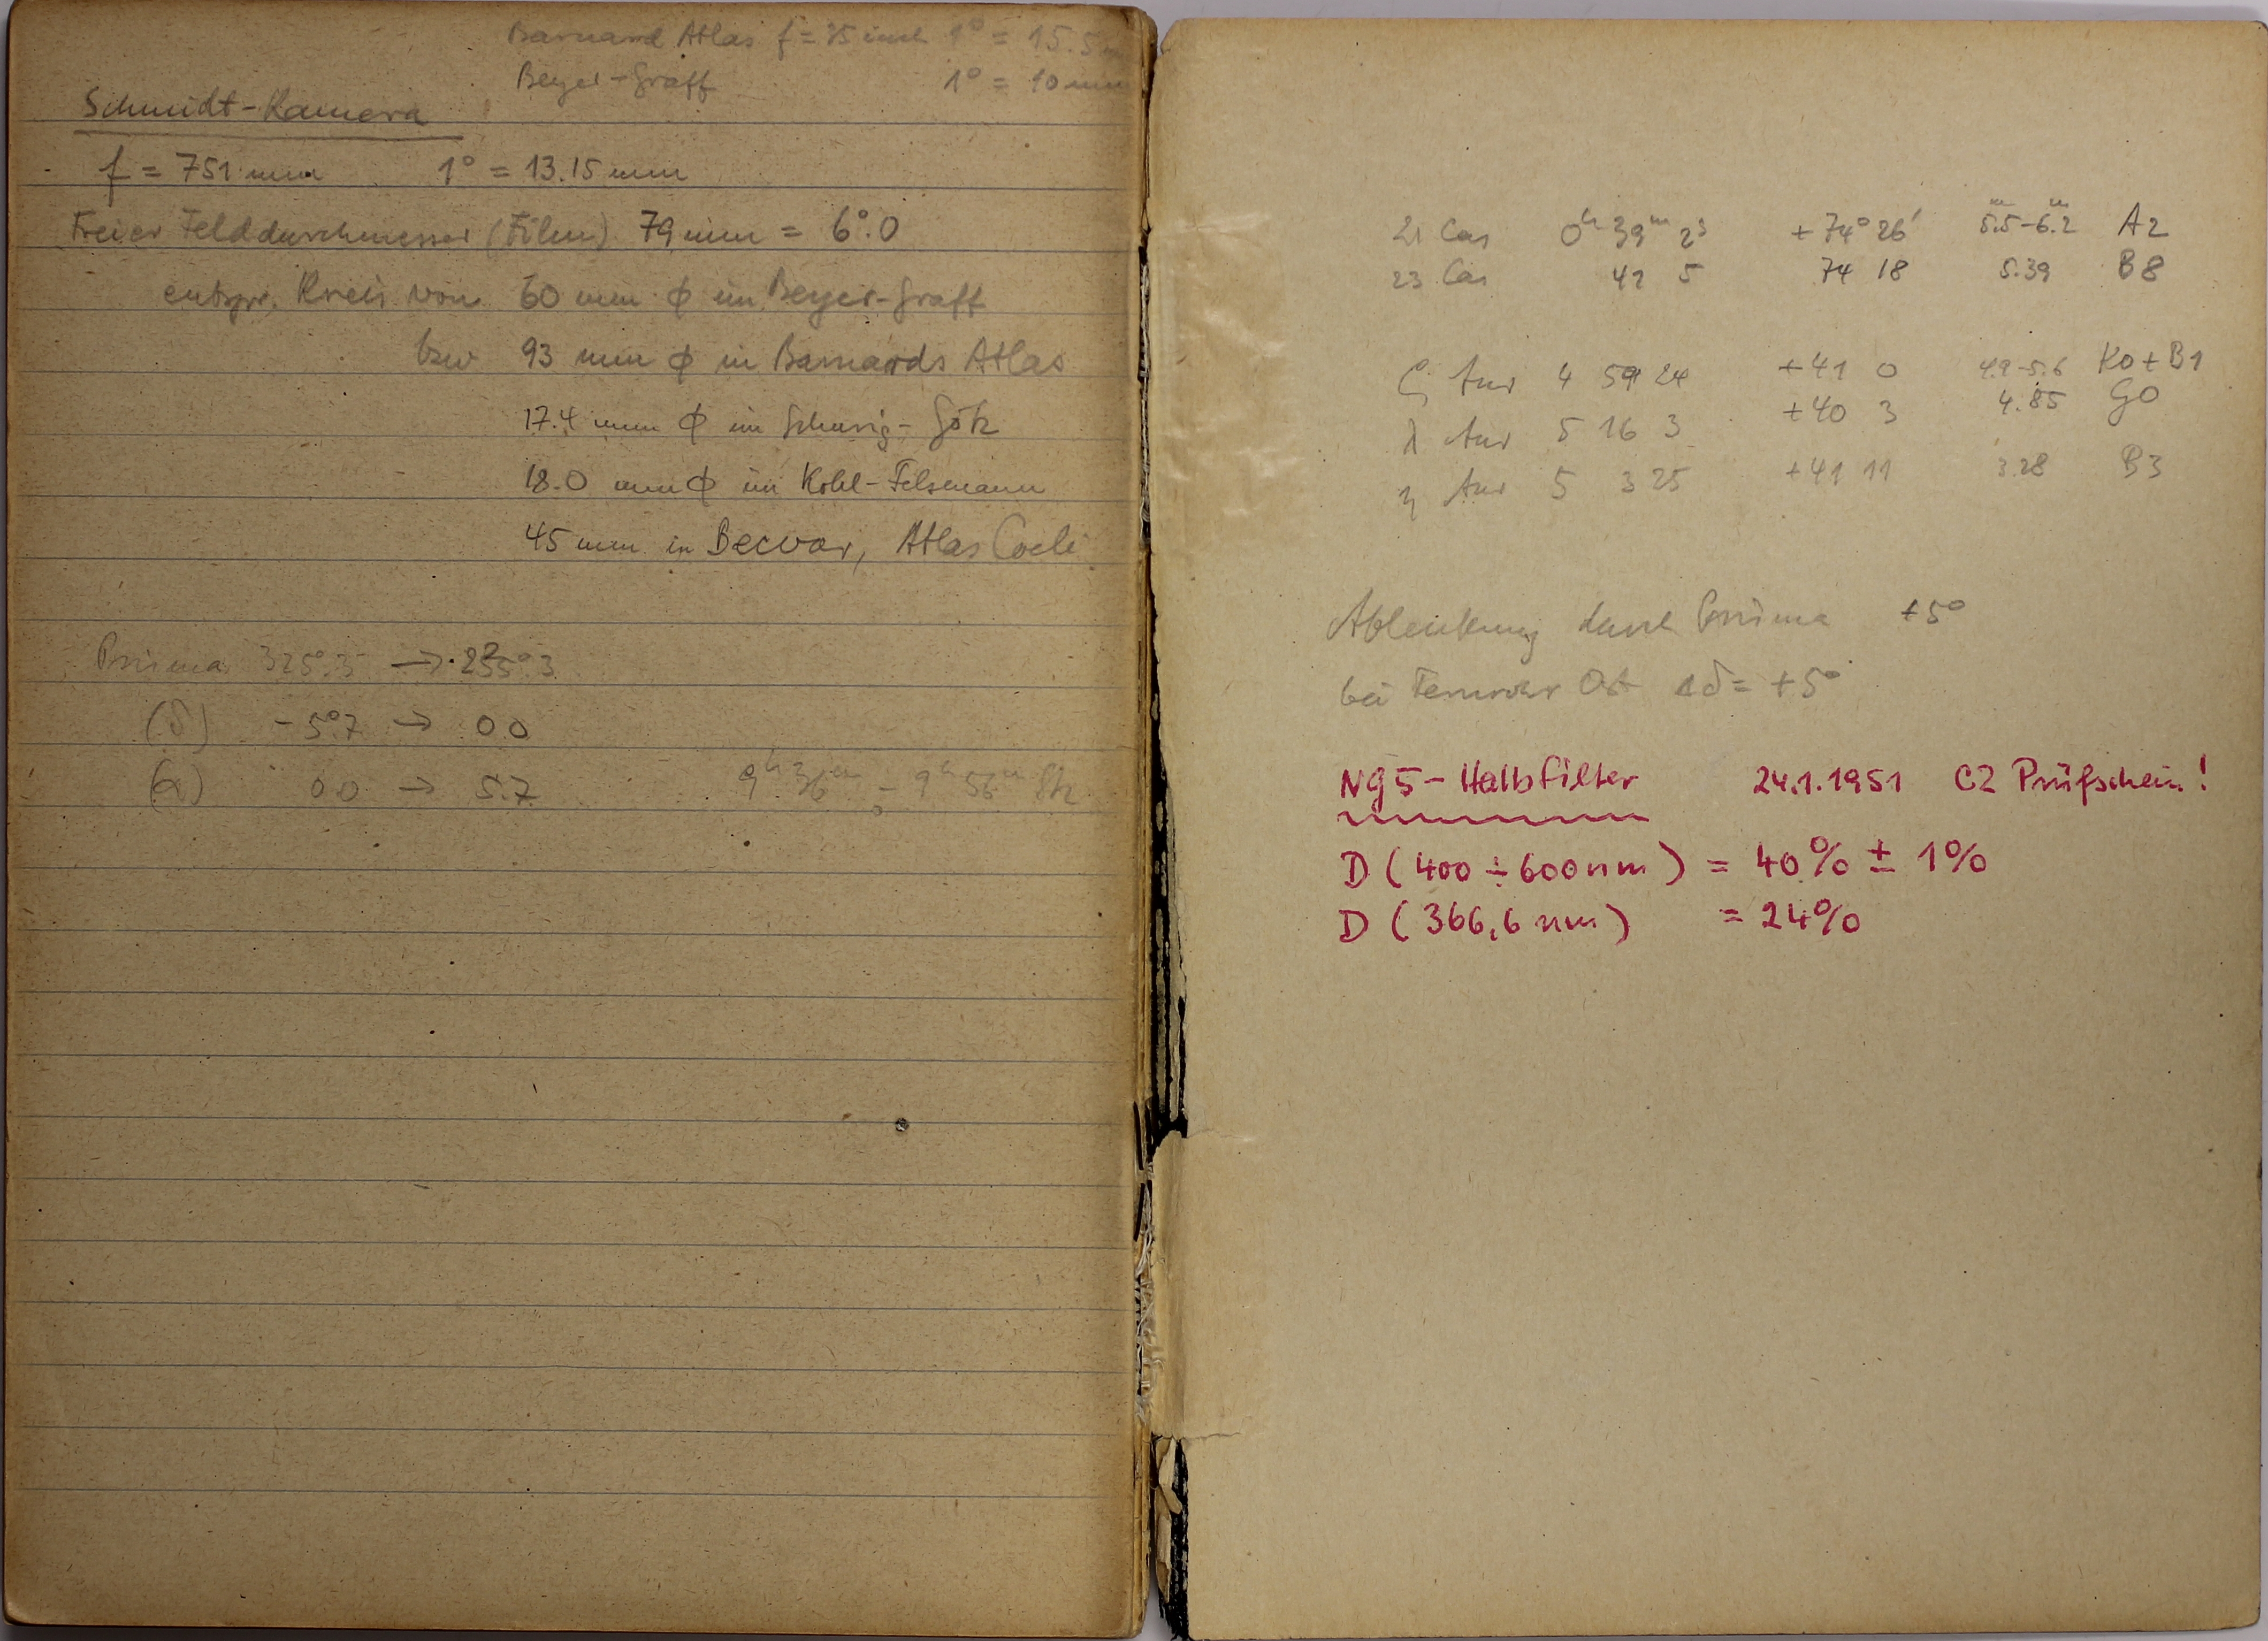 Barnard Atlas f = 35 inch 1° = 15.5
Beyer-Graff 1° = 10 mm
Schmidt-Kamera
f = 751 mm 1° = 13.15 mm
Freier Felddurchmesser (Film) 79 mm = 6°.0
entspr. Kreis von 60 mm ϕ im Beyer-Graff
bzw 93 mm ϕ in Barnards Atlas
17.4 mm ϕ im Schurig-Götz
18.0 mm ϕ im Kohl-Felsmann
45 mm in Becvar, Atlas Coeli
Prisma 325°.3 → 235°.3
(δ) -5°.7 → 0.0
(α) 0.0 → 5.7 9h 36m - 9h 56m
21 Cas 0h 39m 2s +74° 26' 5.5-6.2 A2
23 Cas 41 5 74 18 5.39 B8
ζ Aur 4 59 24 +41 0 4.9-5.6 K0+B1
λ Aur 5 16 3 +40 3 4.85 G0
η Aur 5 3 25 +41 11 3.28 B3
Ablenkung durch Prisma +5°
bei Fernrohr Ost Δδ = +5°
NG5-Halbfilter 24.1.1951 CZ Prüfschein!
D (400 ÷ 600 nm) = 40% ± 1%
D (366,6 nm) = 24%